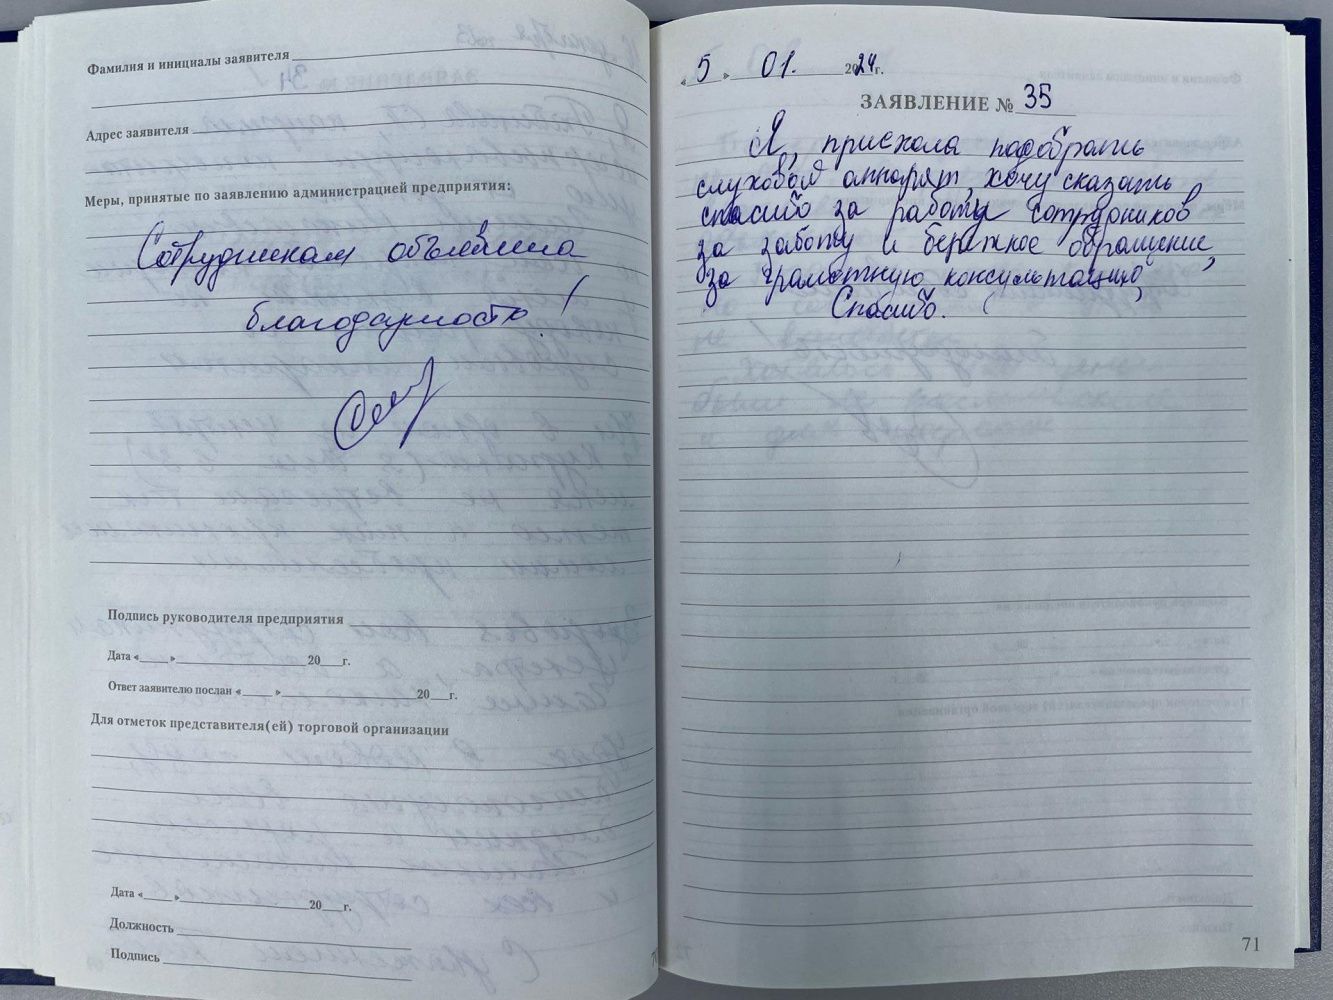 Фамилия и инициалы заявителя
Адрес заявителя
Меры, принятые по заявлению администрацией предприятия:
Сотрудникам объявлена
благодарность!
Подпись руководителя предприятия
Дата «____»____________20___г.
Ответ заявителю послан «____»____________20___г.
Для отметок представителя(ей) торговой организации
Дата «____»____________20___г.
Должность
Подпись
«5» 01. 2024г.
ЗАЯВЛЕНИЕ № 35
Я, приехала подобрать
слуховой аппарят, хочу сказать
спасибо за работу сотрудников
за заботу и бережное обращение,
за грамотную консультацию,
Спасибо.
71